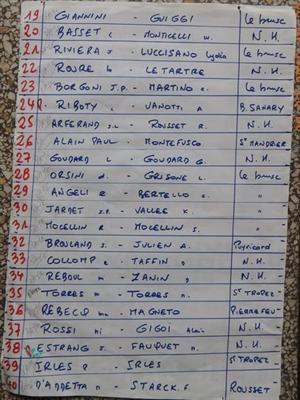 19 GIANNINI - GUIGGI Le brusc
20 BASSET c - MONTICELLI w. N.H.
21 RIVIERA J - LUCCISANO Lydia Le brusc
22 ROURE b - LETARTRE N.H.
23 BORGONI J.P. - MARTINO c. Le brusc
24 RIBOTY - VANOTTI A B. SANARY
25 ARFERAND J.L - ROUSSET R. N.H.
26 ALAIN PAUL - MONTEFUSCO ST MANDRIER
27 GOUDARD L - GOUDARD G. N.H.
28 ORSINI d. - GRISONE L. Le brusc
29 ANGELI R - BERTELLO c. "
30 JARDET J.P. - VALLEE K. "
31 MOCELLIN R - MOCELLIN S. "
32 BROULAND S - JULIEN A. Puyricard
33 COLLOMP R - TAFFIN N.H.
34 REBOUL m - ZANIN N.H.
35 TORRES m - TORRES n. ST TROPEZ
36 REBECQ m - MAGNETO PIERREFEU
37 ROSSI ni - GIGOI Alain N.H.
38 ESTRANG J. - FAUQUET n. N.H.
39 IRLES P - IRLES ST TROPEZ
40 D'ADDETTA n - STARCK F. ROUSSET